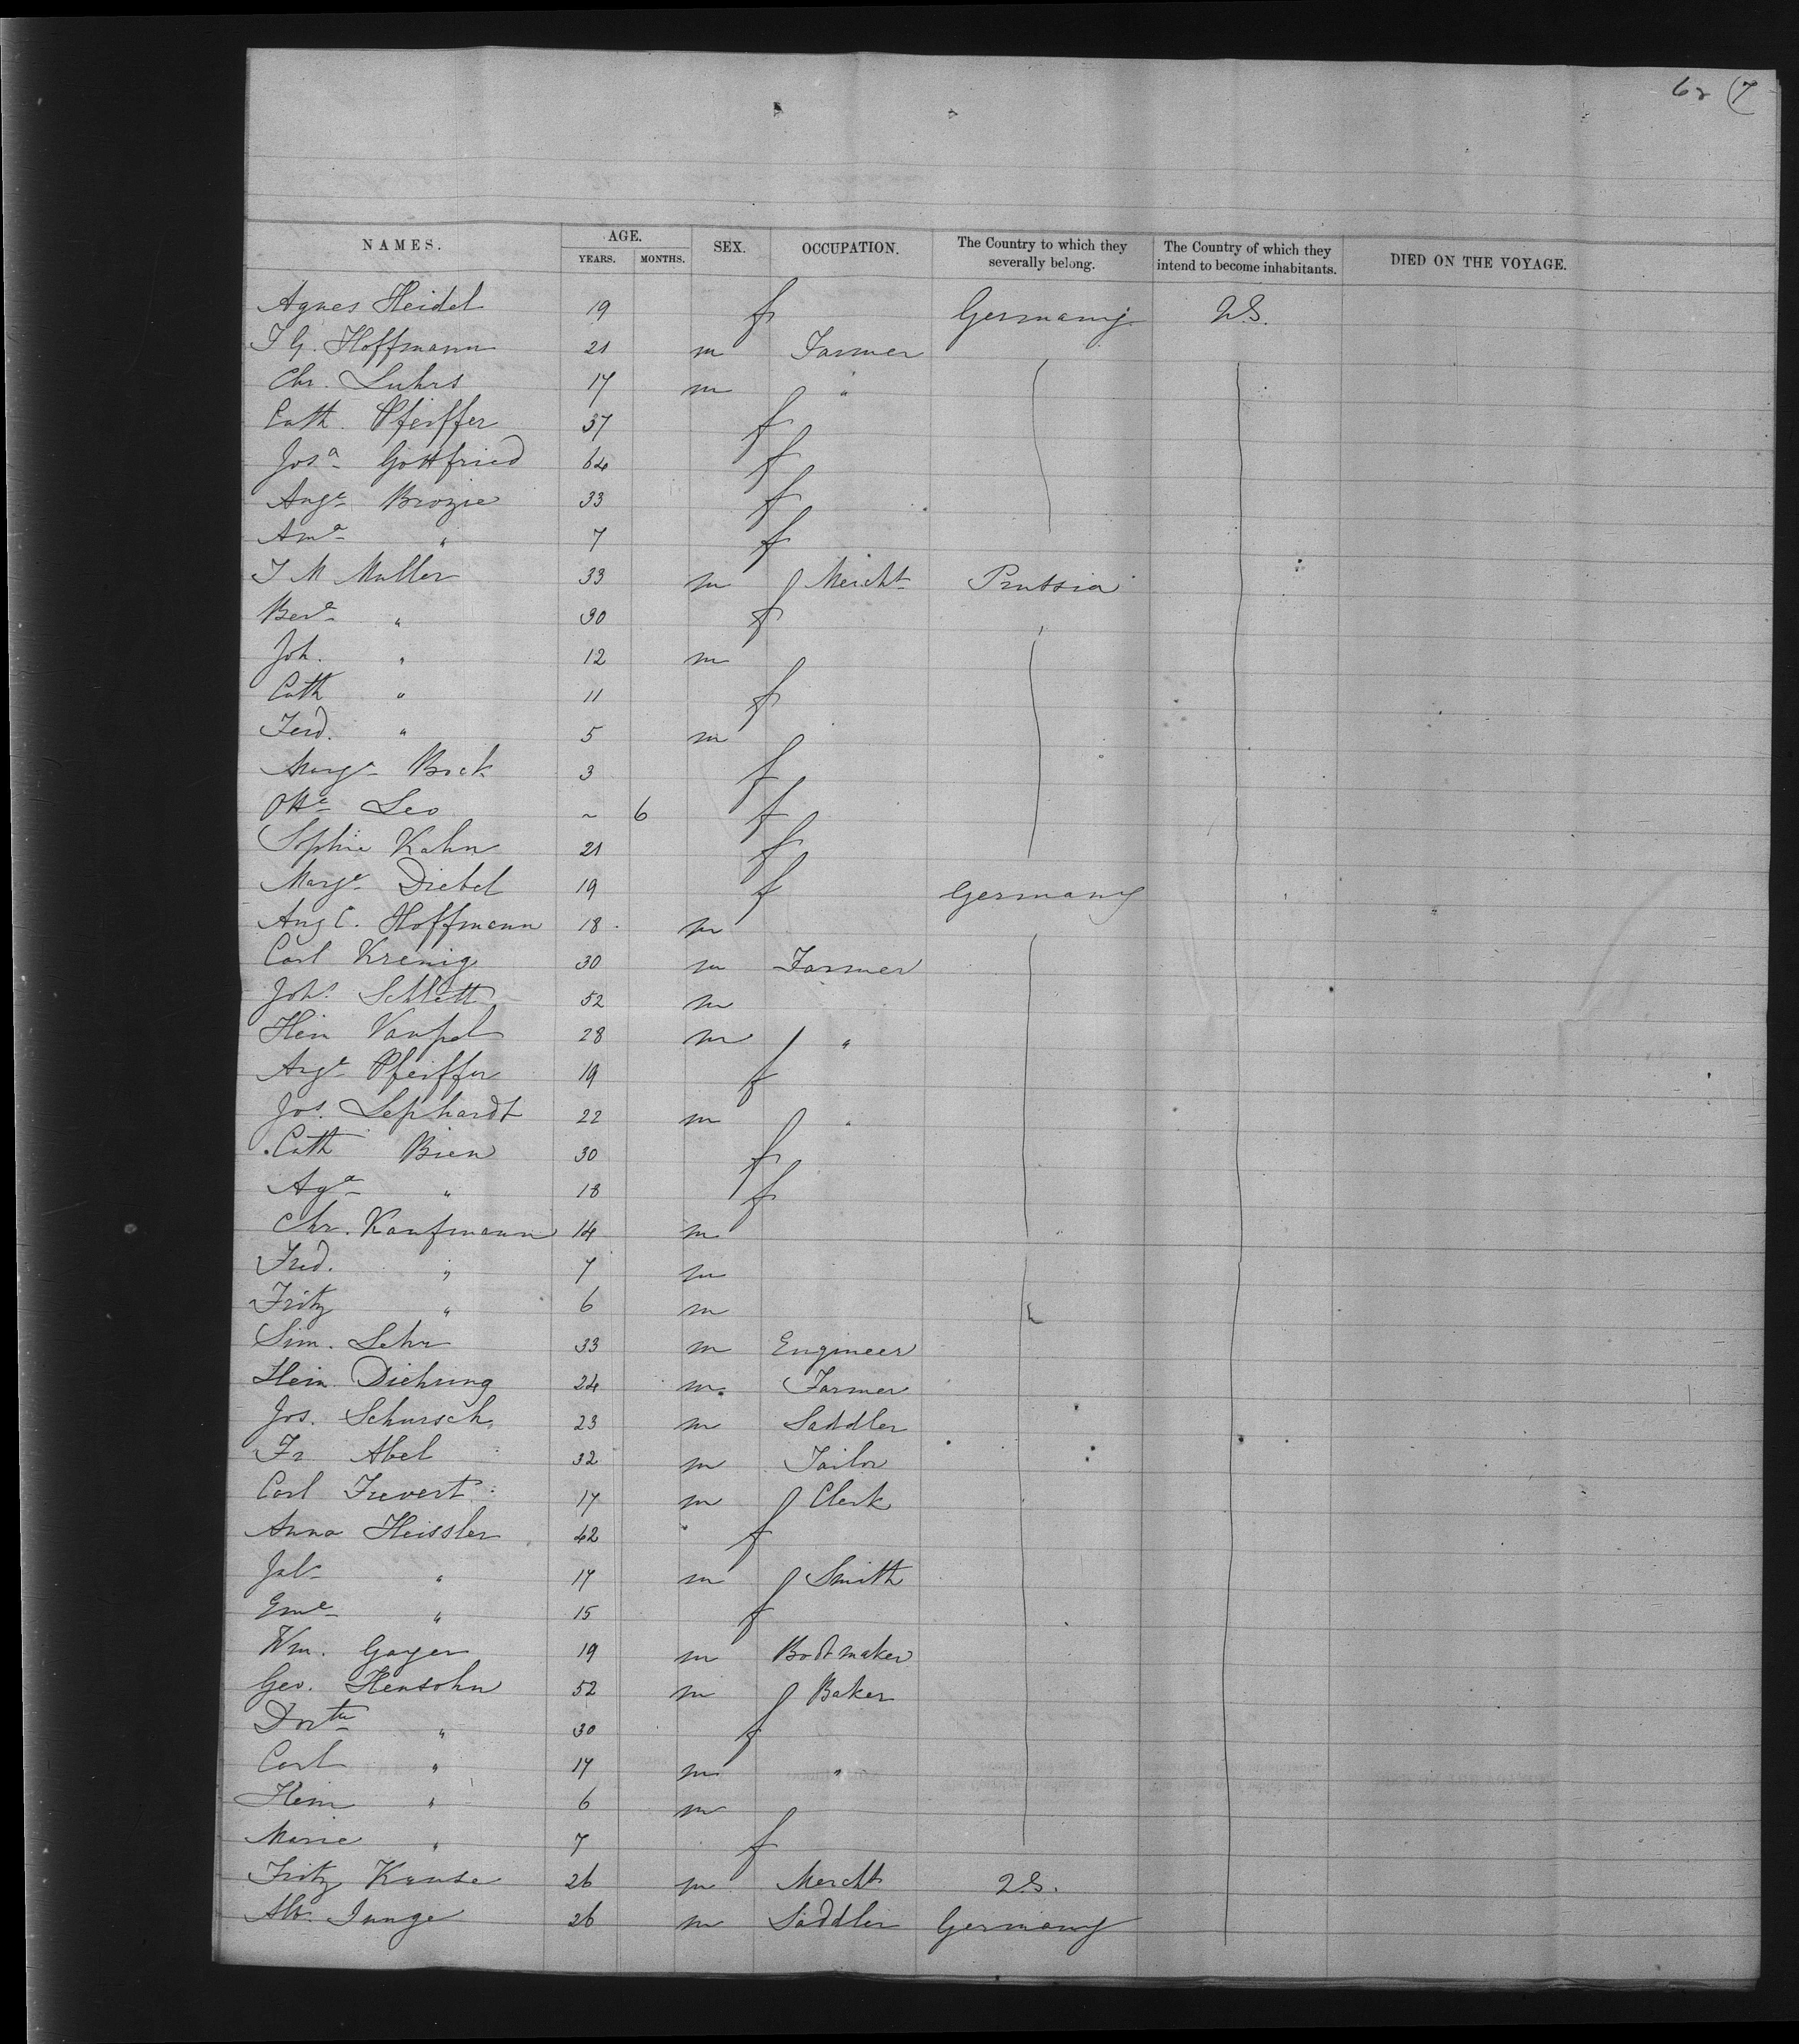 62 (7
NAMES. AGE. YEARS. MONTHS. SEX. OCCUPATION. The Country to which they severally belong. The Country of which they intend to become inhabitants. DIED ON THE VOYAGE.
Agnes Heidel 19 f Germany U.S.
J G. Hoffmann 21 m Farmer
Chr. Luhrs 17 m "
Cath. Pfeiffer 37 f
Josa Gottfried 64 f
Auge Brozie 33 f
Ama " 7 f
J M Muller 33 m Mercht Prussia
Bere " 30 f
Joh. " 12 m
Cath " 11 f
Ferd. " 5 m
Marge Bock 3 f
Otte Leo ~ 6 f
Sophie Kahn 21 f
Marge Dietel 19 f Germany
Aug C. Hoffmann 18 m
Carl Krenig 30 m Farmer
Johs Schlett 52 m
Hein Vaupel 28 m "
Auge Pfeiffer 19 f
Jos. Lephardt 22 m "
Cath Bien 30 f
Aga " 18 f
Chr. Kaufmann 14 m
Fred. " 7 m
Fritz " 6 m
Sim. Lehr 33 m Engineer
Hein. Diehring 24 m Farmer
Jos. Schursch 23 m Saddler
Fr Abel 32 m Tailor
Carl Frevert 17 m Clerk
Anna Heissler 42 f
" 17 m Smith
Eme " 15 f
Wm. Gayer 19 m Bootmaker
Geo. Hensohn 52 m Baker
Dorth " 30 f
Carl " 17 m "
Hein " 6 m
Marie " 7 f
Fritz Kruse 26 m Mercht U.S.
Alb. Junge 26 m Saddler Germany